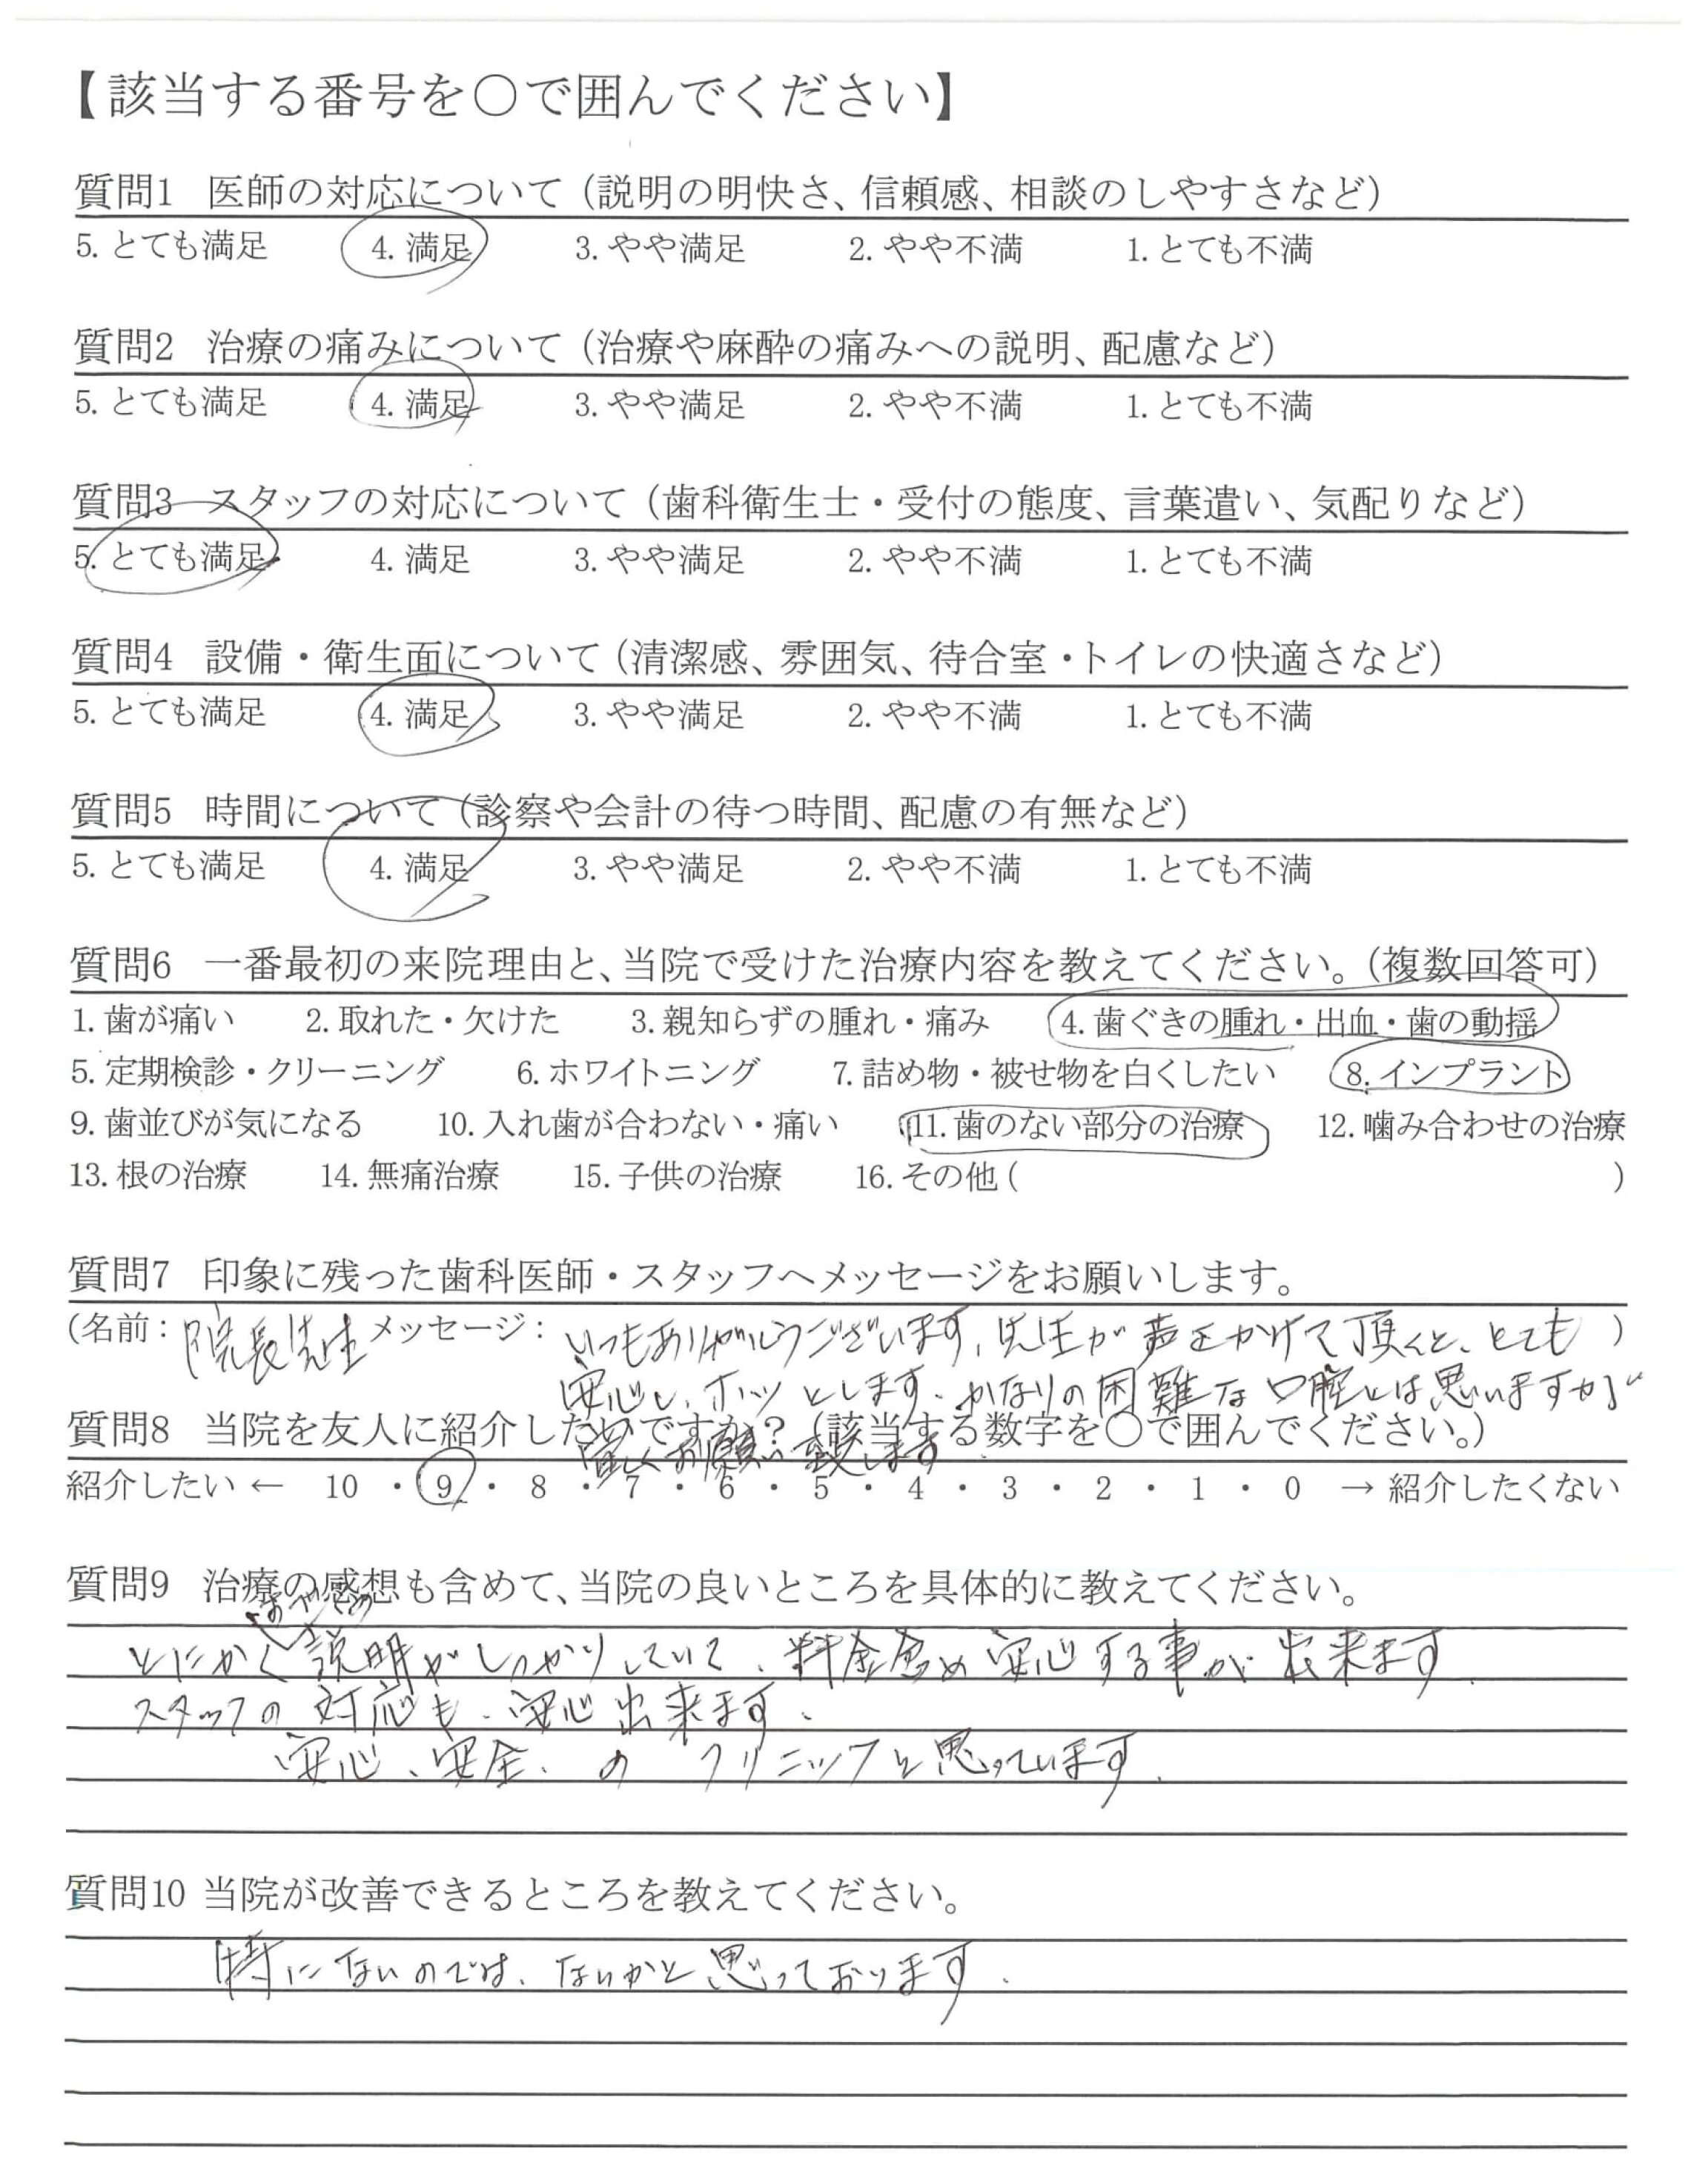 【該当する番号を○で囲んでください】
質問1 医師の対応について（説明の明快さ、信頼感、相談のしやすさなど）
5. とても満足 4. 満足 3. やや満足 2. やや不満 1. とても不満
質問2 治療の痛みについて（治療や麻酔の痛みへの説明、配慮など）
5. とても満足 4. 満足 3. やや満足 2. やや不満 1. とても不満
質問3 スタッフの対応について（歯科衛生士・受付の態度、言葉遣い、気配りなど）
5. とても満足 4. 満足 3. やや満足 2. やや不満 1. とても不満
質問4 設備・衛生面について（清潔感、雰囲気、待合室・トイレの快適さなど）
5. とても満足 4. 満足 3. やや満足 2. やや不満 1. とても不満
質問5 時間について（診察や会計の待つ時間、配慮の有無など）
5. とても満足 4. 満足 3. やや満足 2. やや不満 1. とても不満
質問6 一番最初の来院理由と、当院で受けた治療内容を教えてください。（複数回答可）
1. 歯が痛い 2. 取れた・欠けた 3. 親知らずの腫れ・痛み 4. 歯ぐきの腫れ・出血・歯の動揺
5. 定期検診・クリーニング 6. ホワイトニング 7. 詰め物・被せ物を白くしたい 8. インプラント
9. 歯並びが気になる 10. 入れ歯が合わない・痛い 11. 歯のない部分の治療 12. 噛み合わせの治療
13. 根の治療 14. 無痛治療 15. 子供の治療 16. その他（ ）
質問7 印象に残った歯科医師・スタッフへメッセージをお願いします。
（名前：院長先生 メッセージ：いつもありがとうございます、先生が声をかけて頂くと、とても）
安心し、ホッとします、かなりの困難な口腔とは思いますが
質問8 当院を友人に紹介したいですか？（該当する数字を○で囲んでください。）
お願い致します
紹介したい ← 10 ・ 9 ・ 8 ・ 7 ・ 6 ・ 5 ・ 4 ・ 3 ・ 2 ・ 1 ・ 0 → 紹介したくない
質問9 治療の感想も含めて、当院の良いところを具体的に教えてください。
とにかく説明がしっかりしていて、料金含め安心する事が出来ます
スタッフの対応も、安心出来ます、
安心、安全、のクリニックと思っています、
質問10 当院が改善できるところを教えてください。
特にないのでは、ないかと思っております、